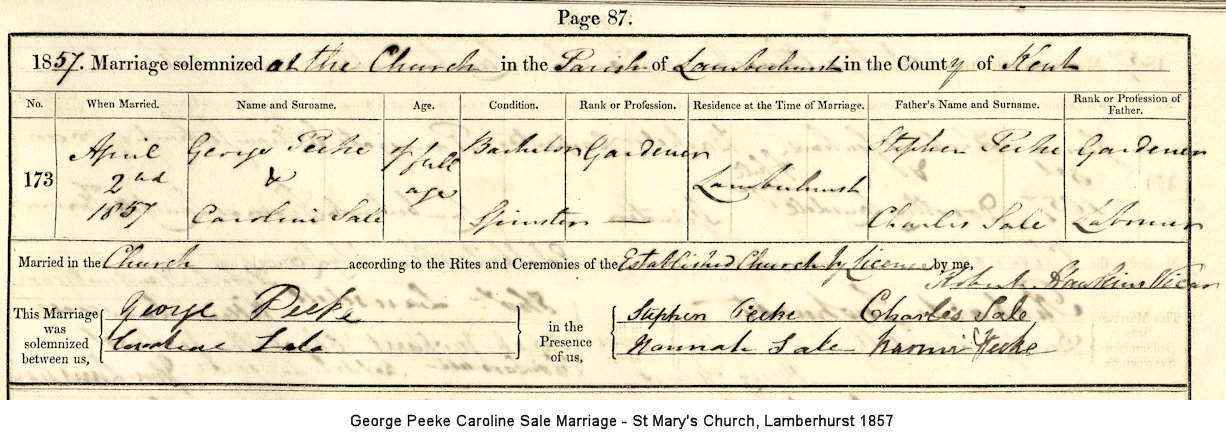 Page 87.
1857. Marriage solemnized at the Church in the Parish of Lamberhurst in the County of Kent
No. When Married. Name and Surname. Age. Condition. Rank or Profession. Residence at the Time of Marriage. Father's Name and Surname. Rank or Profession of Father.
173 April 2nd 1857 George Peeke & Caroline Sale of full age Bachelor Spinster Gardener — Lamberhurst Stephen Peeke Charles Sale Gardener Labourer
Married in the Church according to the Rites and Ceremonies of the Established Church by Licence by me,
Robert Hawkins Vicar
This Marriage was solemnized between us, George Peeke Caroline Sale in the Presence of us, Stephen Peeke Charles Sale
Hannah Sale Naomi Peeke
George Peeke Caroline Sale Marriage - St Mary's Church, Lamberhurst 1857